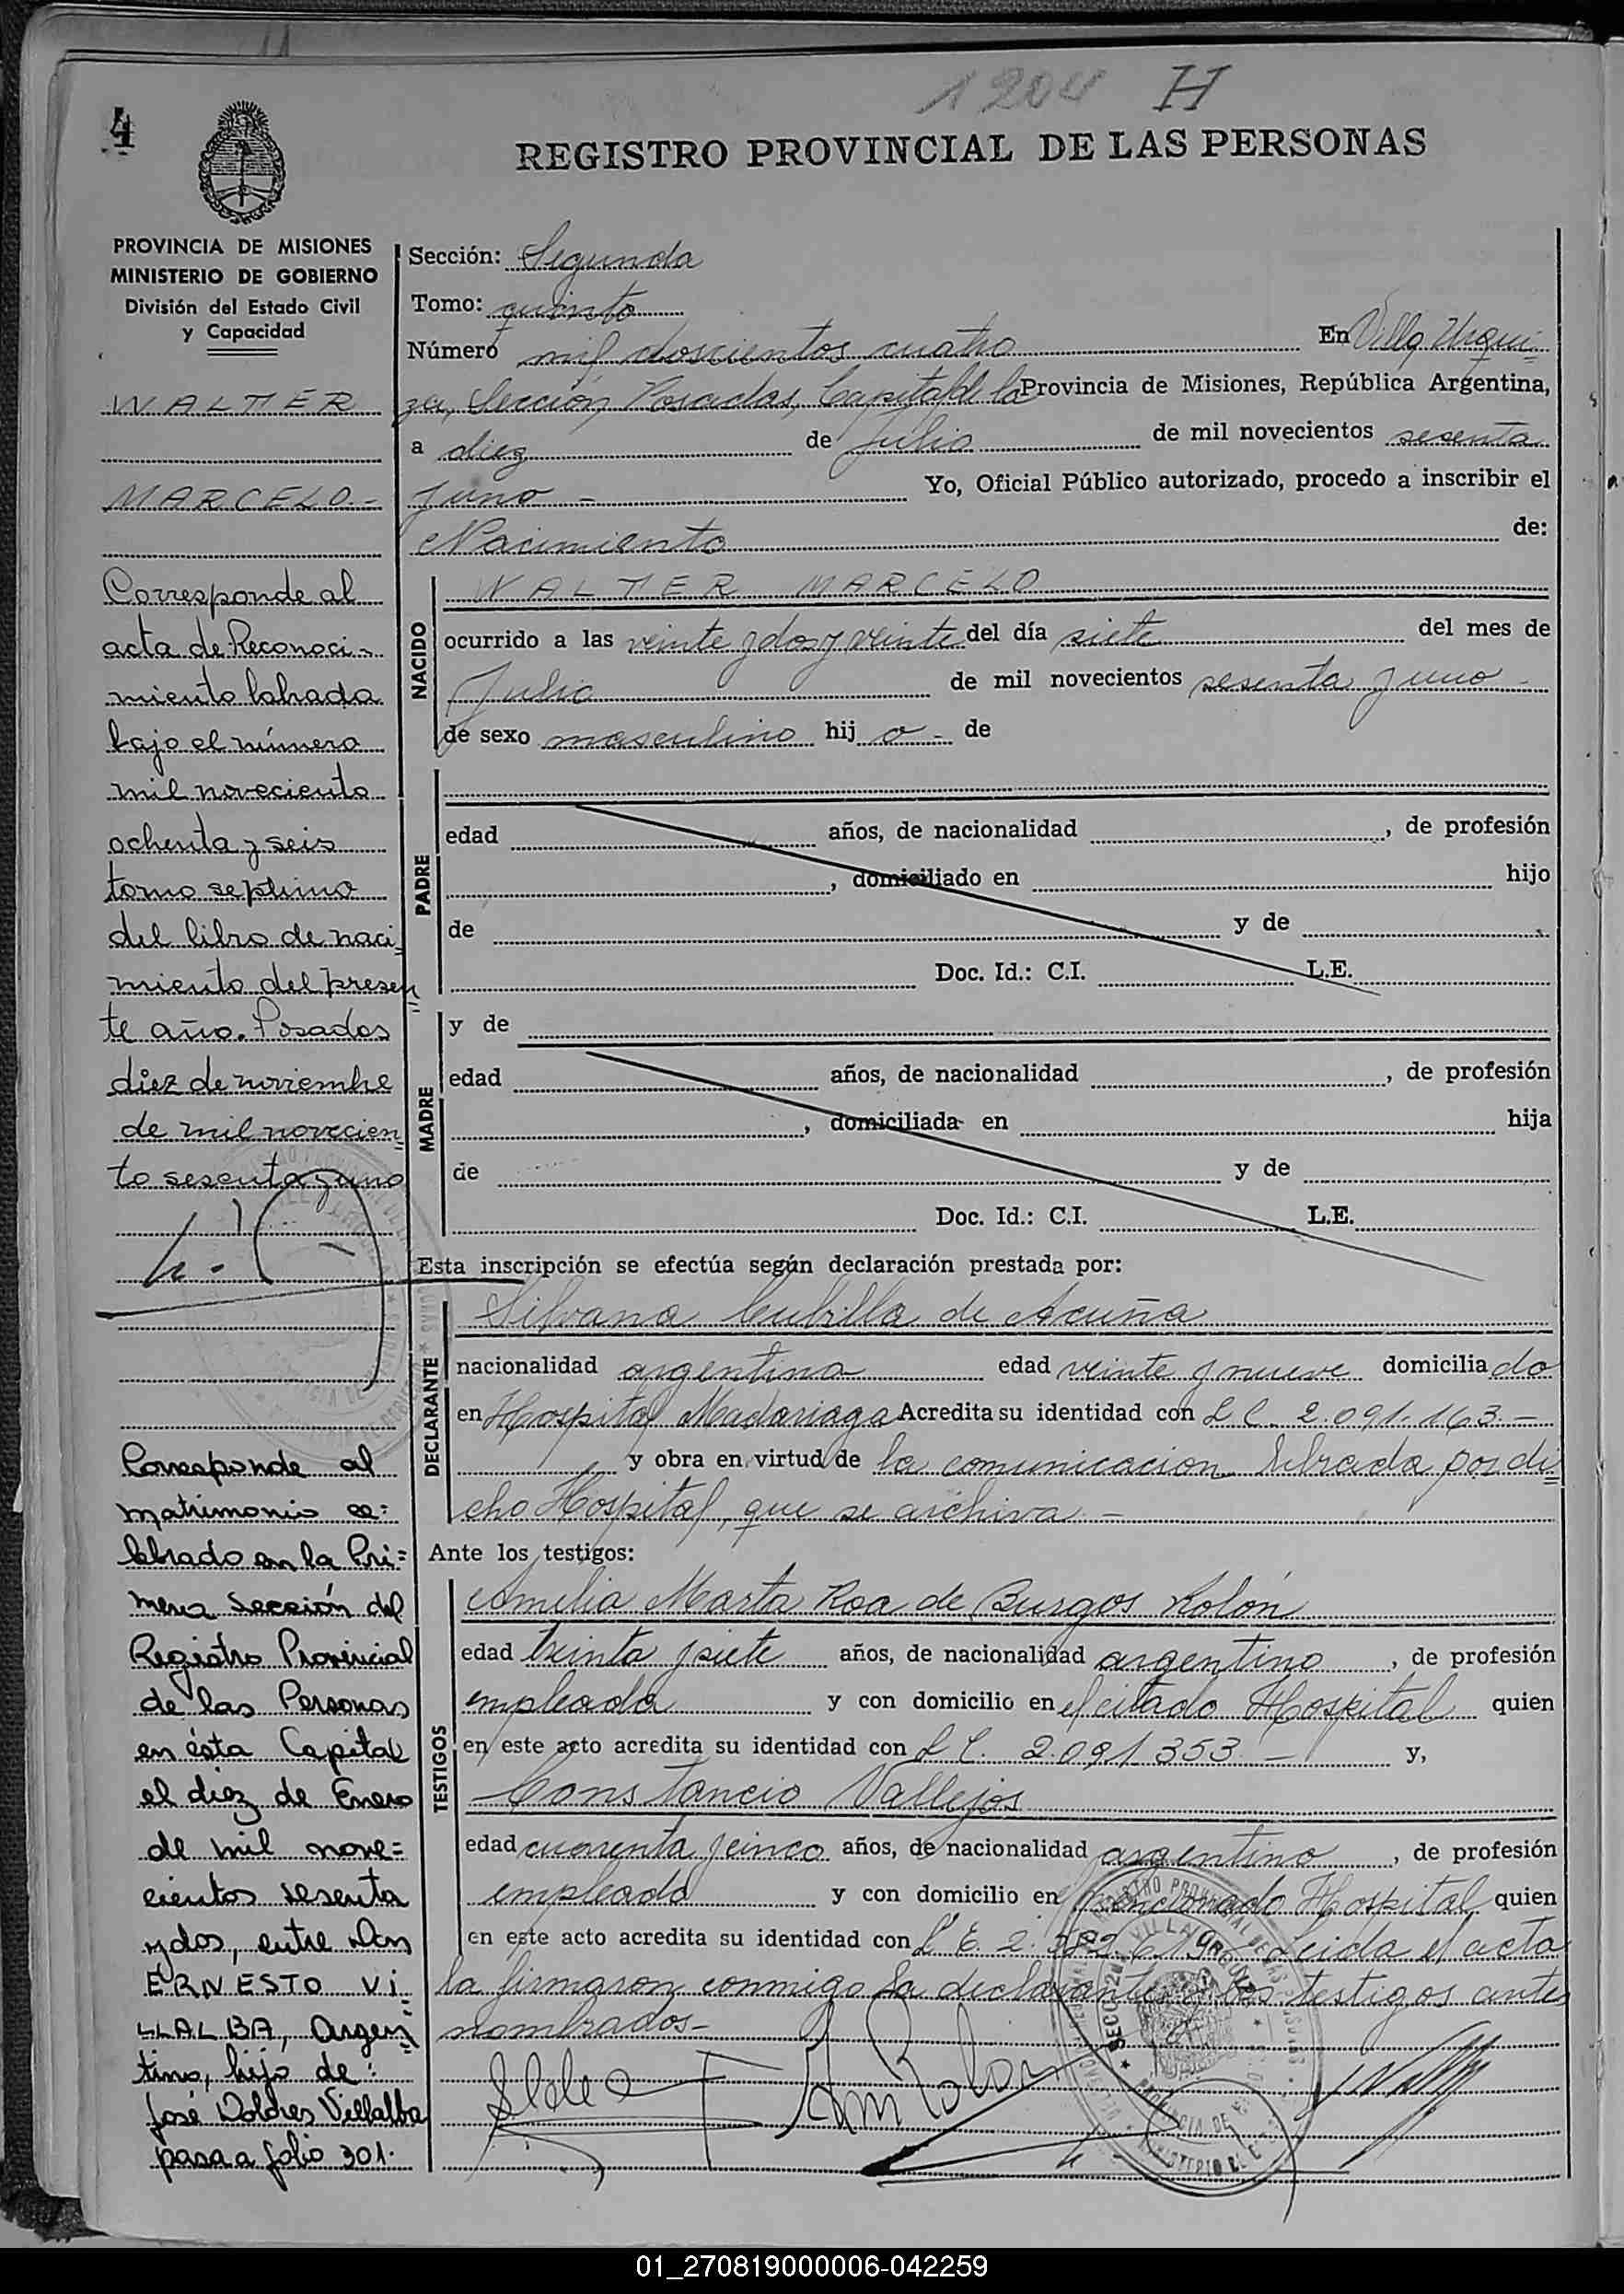 1204 H
4
REGISTRO PROVINCIAL DE LAS PERSONAS
PROVINCIA DE MISIONES
MINISTERIO DE GOBIERNO
División del Estado Civil
y Capacidad
WALTER
MARCELO.-
Corresponde al
acta de Reconoci-
miento labrada
bajo el número
mil noveciento
ochenta y seis
tomo septimo
del libro de naci=
miento del presen=
te año. Posadas
diez de noviembre
de mil novecien=
to sesenta y uno
Corresponde al
matrimonio ce=
lebrado en la Pri=
mera Sección del
Registro Provincial
de las Personas
en ésta Capital
el diez de Enero
de mil nove=
cientos sesenta
y dos, entre Don
ERNESTO VI=
LLALBA, Argen=
tino, hijo de:
José Dolores Villalba
pasa a folio 301.
Sección: Segunda
Tomo: quinto
Número mil doscientos cuatro En Villa Urqui-
za, Sección Posadas, Capital de la Provincia de Misiones, República Argentina,
a diez de Julio de mil novecientos sesenta
y uno - Yo, Oficial Público autorizado, procedo a inscribir el
Nacimiento de:
NACIDO
WALTER MARCELO
ocurrido a las veinte y dos y veinte del día siete del mes de
Julio de mil novecientos sesenta y uno -
de sexo masculino hij o - de
PADRE
edad años, de nacionalidad , de profesión
, domiciliado en hijo
de y de
Doc. Id.: C.I. L.E.
MADRE
y de
edad años, de nacionalidad , de profesión
, domiciliada en hija
de y de
Doc. Id.: C.I. L.E.
Esta inscripción se efectúa según declaración prestada por:
DECLARANTE
Silvana Cubilla de Acuña
nacionalidad argentina edad veinte y nueve domicilia do
en Hospital Madariaga Acredita su identidad con L.C. 2.091.163.-
y obra en virtud de la comunicacion librada por di=
cho Hospital, que se archiva. -
Ante los testigos:
TESTIGOS
Amelia Marta Roa de Burgos Kolón
edad treinta y siete años, de nacionalidad argentino , de profesión
empleada y con domicilio en el citado Hospital quien
en este acto acredita su identidad con L C. 2.091.353 - y,
Constancio Vallejos
edad cuarenta y cinco años, de nacionalidad argentino , de profesión
empleado y con domicilio en mencionado Hospital quien
en este acto acredita su identidad con L. E. 2. Leida el acta
la firmaron conmigo la declarante y los testigos antes
nombrados-
01_270819000006-042259